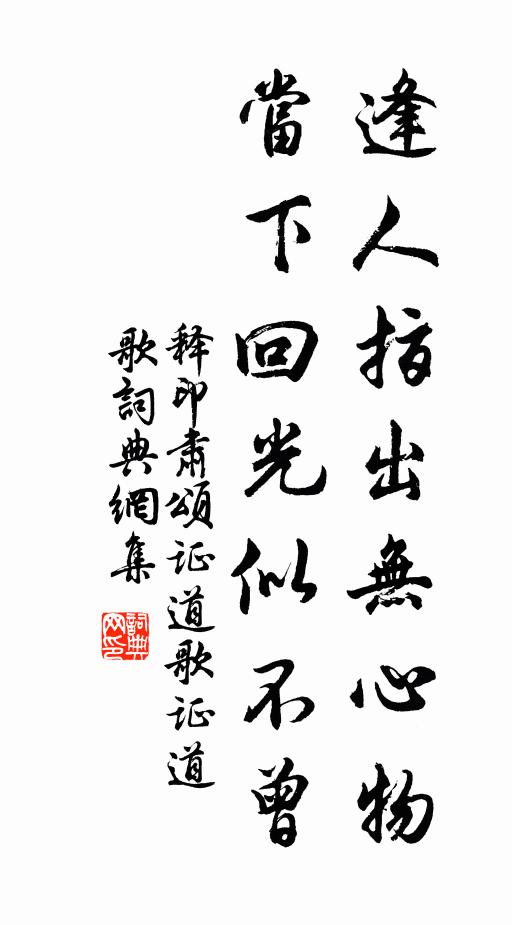 逢人指出無心物
當下回光似不曾
释印肅頌证道歌证道
歌詞典網集
詞典
网印